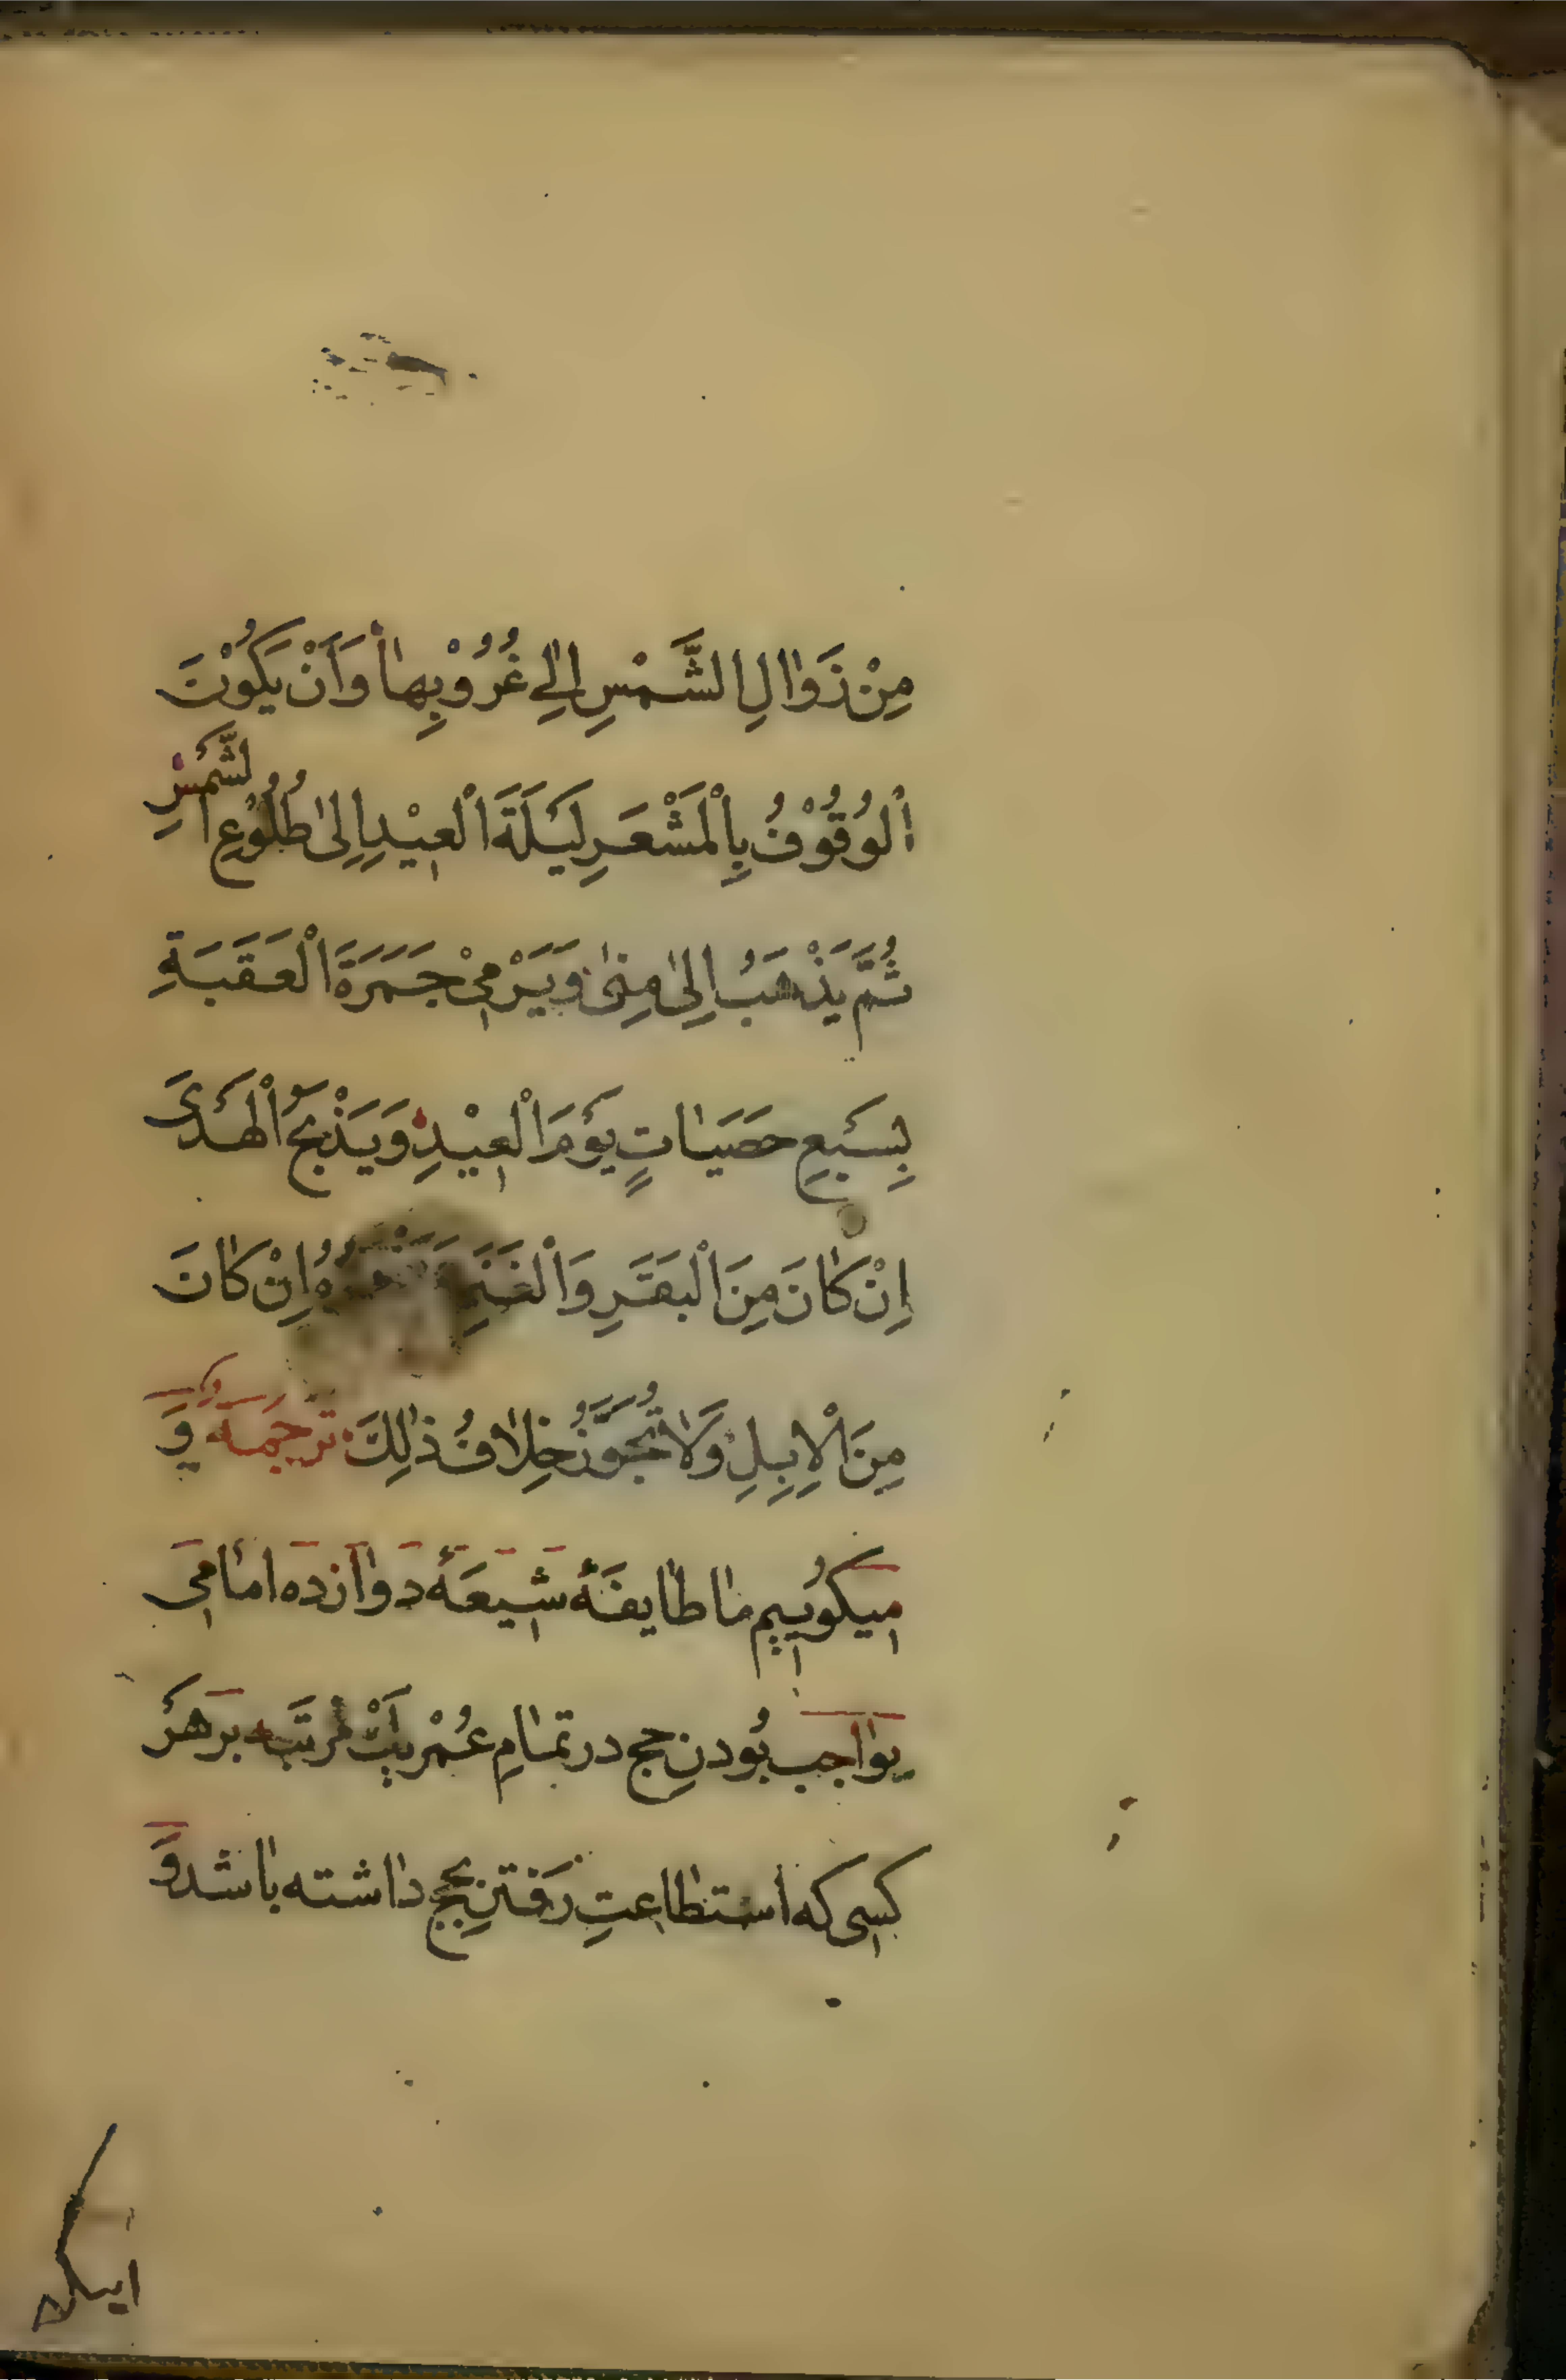 مِنْ زَوٰالِ الشَّمْسِ اِلٰي غُرُوْبِهٰا وَاَنْ يَكُوْنَ
اَلْوُقُوْفُ بِالْمَشْعَرِ لَيْلَةَ الْعِيْدِ اِلىٰ طُلُوْعِ الشَّمْسِ
ثُمَّ يَذْهَبُ اِلىٰ مِنىٰ وَيَرْمِىْ جَمَرَةَ الْعَقَبَةِ
بِسَبْعِ حَصَيٰاتٍ يَوْمَ الْعِيْدِ وَيَذْبَحُ الْهَدْىَ
اِنْ كٰانَ مِنَ الْبَقَرِ وَالْغَنَمِ اِنْ كٰانَ
مِنَ الْاِبِلِ وَلٰا تُجَوَّزُ خِلٰافُ ذٰلِكَ تَرْجُمَهٔ وَ
ميكوُييم مٰا طٰايفَهٔ شيعَهٔ دوٰازده امٰامى
بوٰاجب بُودنِ حج در تمٰامِ عُمْر يَكْ مرتَبه بَر هَرْ
كسى كه استطٰاعتِ رَفتنِ بحج دٰاشته بٰاشد وَ
اينكه